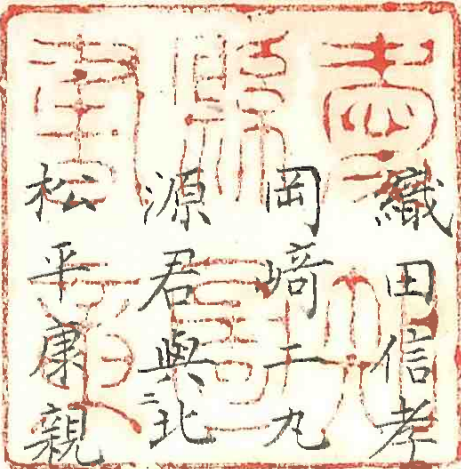 織田信孝
岡﨑二九
源君與二北
松平康親